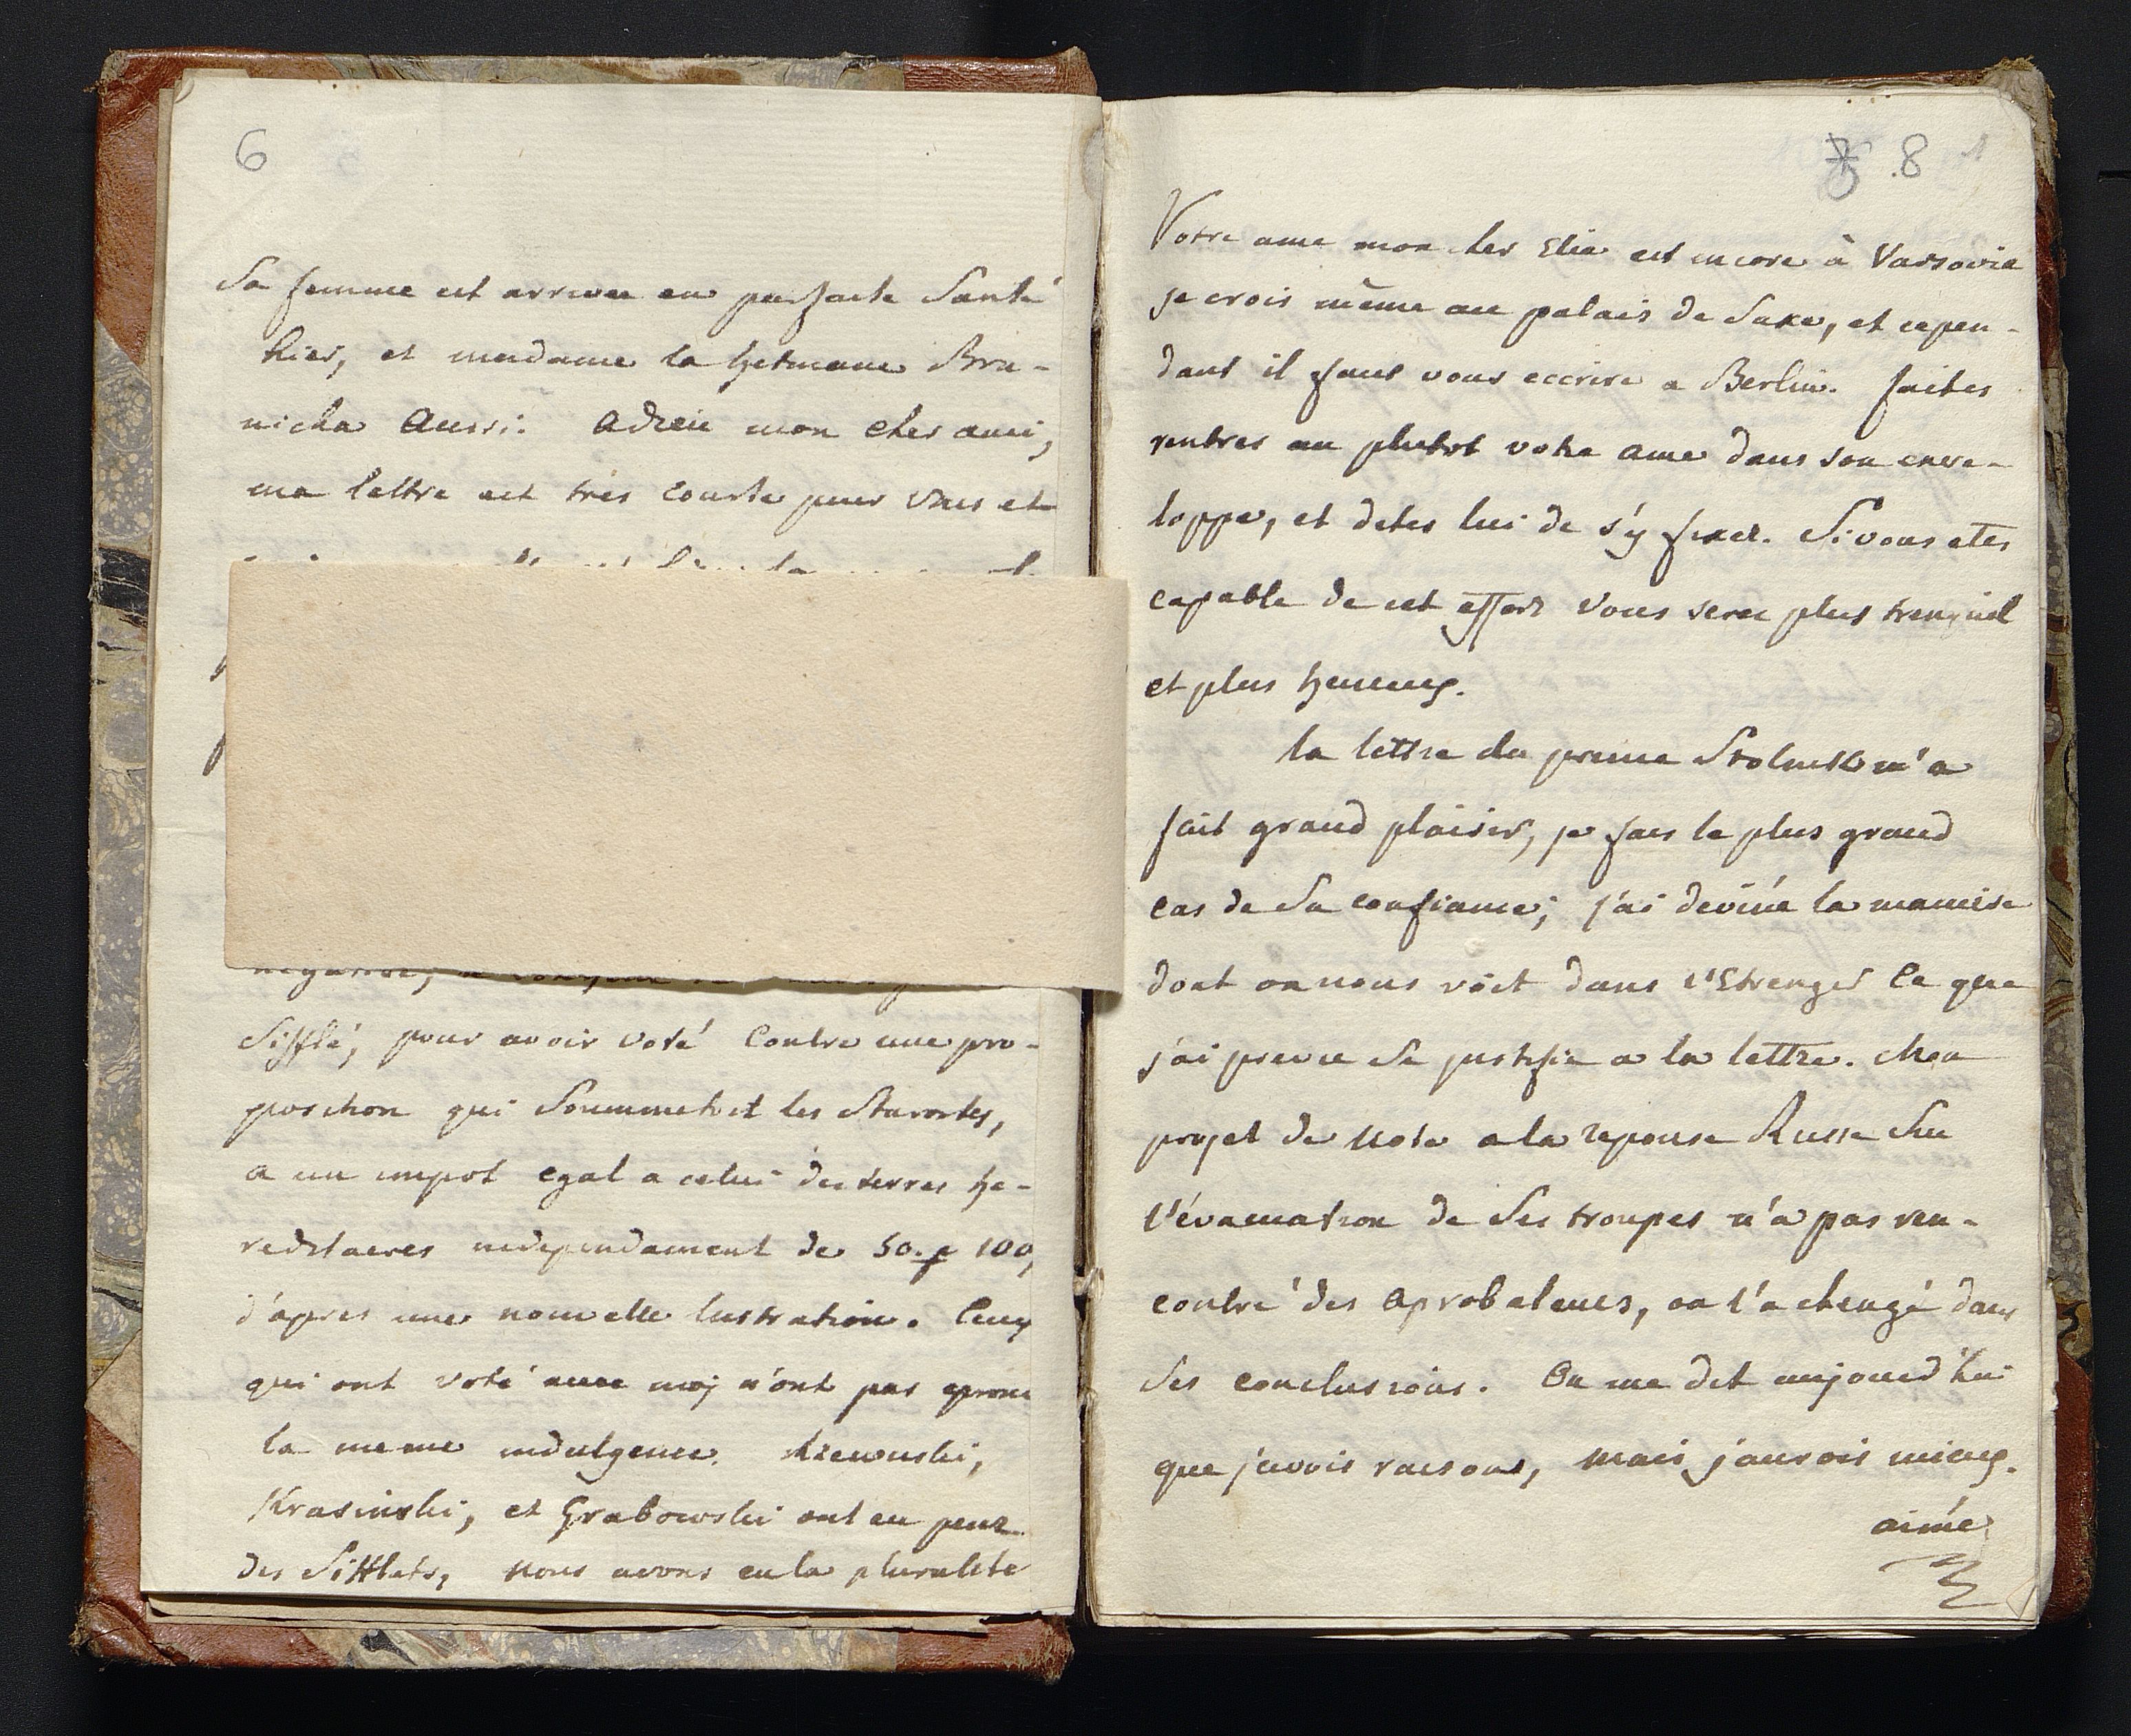 6
Sa femme est arrivee en parfaite Santé
hier, et madame la hetmane Bra-
nicka Aussi. Adieu mon cher ami,
ma lettre est très courte pour vous et
Sifflé, pour avoir voté Contre une pro-
position qui Soummetoit les Starosties,
a un impot egal a celui des terres he-
reditaires independament de 50. p 100,
d'apres une nouvelle lustration. Ceux
qui ont voté avec moi n'ont pas eprouvé
la meme indulgence. Rzewuski,
Krasinski, et Grabowski ont eu peur
des Sifflets, nous avons eu la pluralité
8
Votre ame mon cher Elie est encore à Varsovie
je crois même au palais de Saxe, et cepen-
dant il faut vous eccrire a Berlin. faites
rentrer au plutot votre ame dans son enve-
loppe, et dites lui de s'y fixer. Si vous etes
capable de cet effort vous serez plus trenquil
et plus heureux.
la lettre du prince Stolnik m'a
fait grand plaisir, je fais le plus grand
cas de Sa confiance; j'ai deviné la maniere
dont on nous voit dans l'Etranger Ce que
j'ai prevu Se justifie a la lettre. Mon
projet de Note a la reponse Russe Sur
l'évacuation de Ses troupes n'a pas ren-
contré des Aprobateurs, on l'a changé dans
Ses conclusions. On me dit aujourd'hui
que j'avois raison, mais j'aurois mieux.
aimé